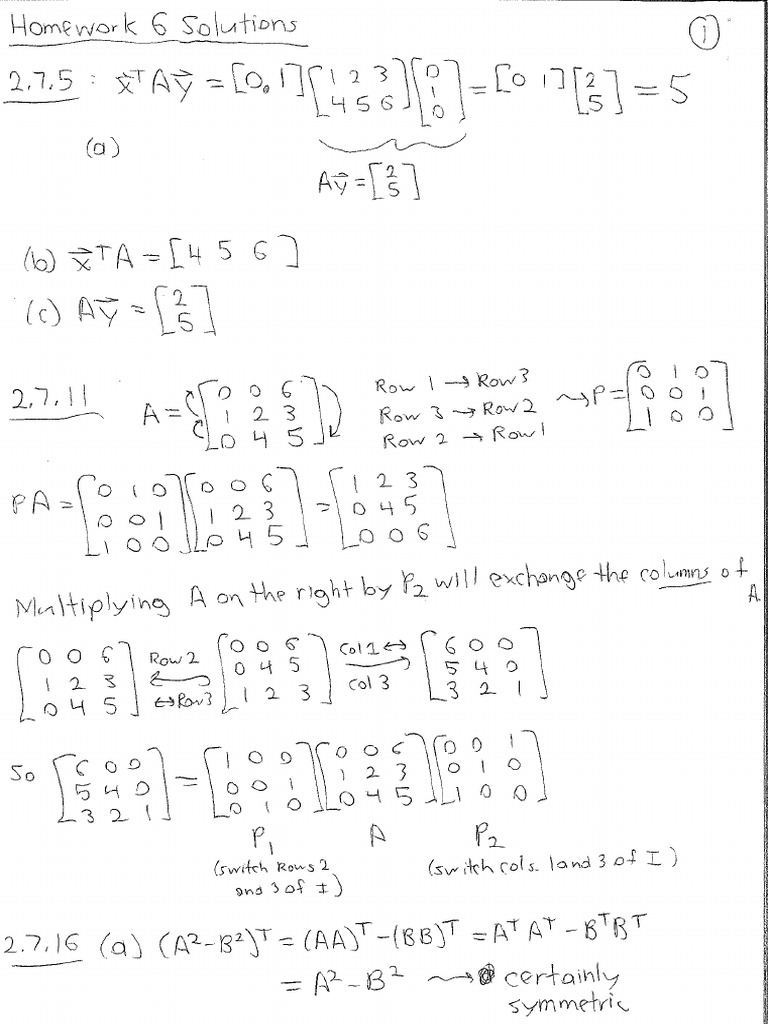 Homework 6 Solutions
①
2.7.5 : x⃗ᵀAy⃗ = [0, 1] [1 2 3; 4 5 6] [0; 1; 0] = [0 1] [2; 5] = 5
(a)
Ay⃗ = [2; 5]
(b) x⃗ᵀA = [4 5 6]
(c) Ay⃗ = [2; 5]
2.7.11 A = [0 0 6; 1 2 3; 0 4 5] Row 1 → Row 3 Row 3 → Row 2 Row 2 → Row 1 ⤳ P = [0 1 0; 0 0 1; 1 0 0]
PA = [0 1 0; 0 0 1; 1 0 0] [0 0 6; 1 2 3; 0 4 5] = [1 2 3; 0 4 5; 0 0 6]
Multiplying A on the right by P₂ will exchange the columns of A.
[0 0 6; 1 2 3; 0 4 5] Row 2 ↔ Row 3 ← [0 0 6; 0 4 5; 1 2 3] Col 1 ↔ Col 3 → [6 0 0; 5 4 0; 3 2 1]
So [6 0 0; 5 4 0; 3 2 1] = [1 0 0; 0 0 1; 0 1 0] [0 0 6; 1 2 3; 0 4 5] [0 0 1; 0 1 0; 1 0 0]
P₁ A P₂
(switch Rows 2 and 3 of I) (switch cols. 1 and 3 of I)
2.7.16 (a) (A²-B²)ᵀ = (AA)ᵀ - (BB)ᵀ = AᵀAᵀ - BᵀBᵀ
= A² - B² ⤳ certainly
symmetric